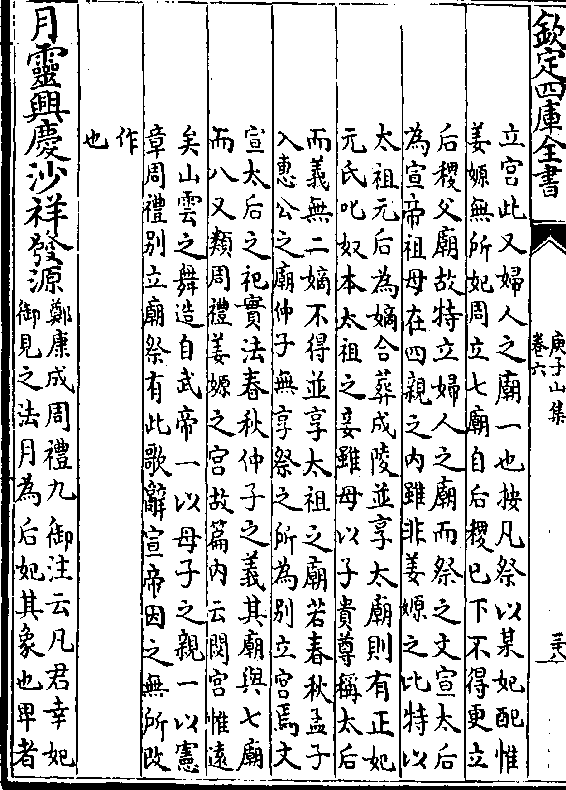 欽定四庫全書
庾子山集
卷六
立宮此又婦人之廟一也按凡祭以某妃配惟
姜嫄無所妃周立七廟自后稷已下不得更立
后稷父廟故特立婦人之廟而祭之文宣太后
為宣帝祖母在四親之內雖非姜嫄之比特以
太祖元后為嫡合葬成陵並享太廟則有正妃
元氏叱奴本太祖之妾雖母以子貴尊稱太后
而義無二嫡不得並享太祖之廟若春秋孟子
入惠公之廟仲子無享祭之所為別立宮焉文
宣太后之祀實法春秋仲子之義其廟與七廟
而八又類周禮姜嫄之宮故篇內云閟宮惟遠
矣山雲之舞造自武帝一以母子之親一以憲
章周禮別立廟祭有此歌辭宣帝因之無所改
作
也
月靈興慶沙祥發源
鄭康成周禮九御注云凡君幸妃
御見之法月為后妃其象也卑者